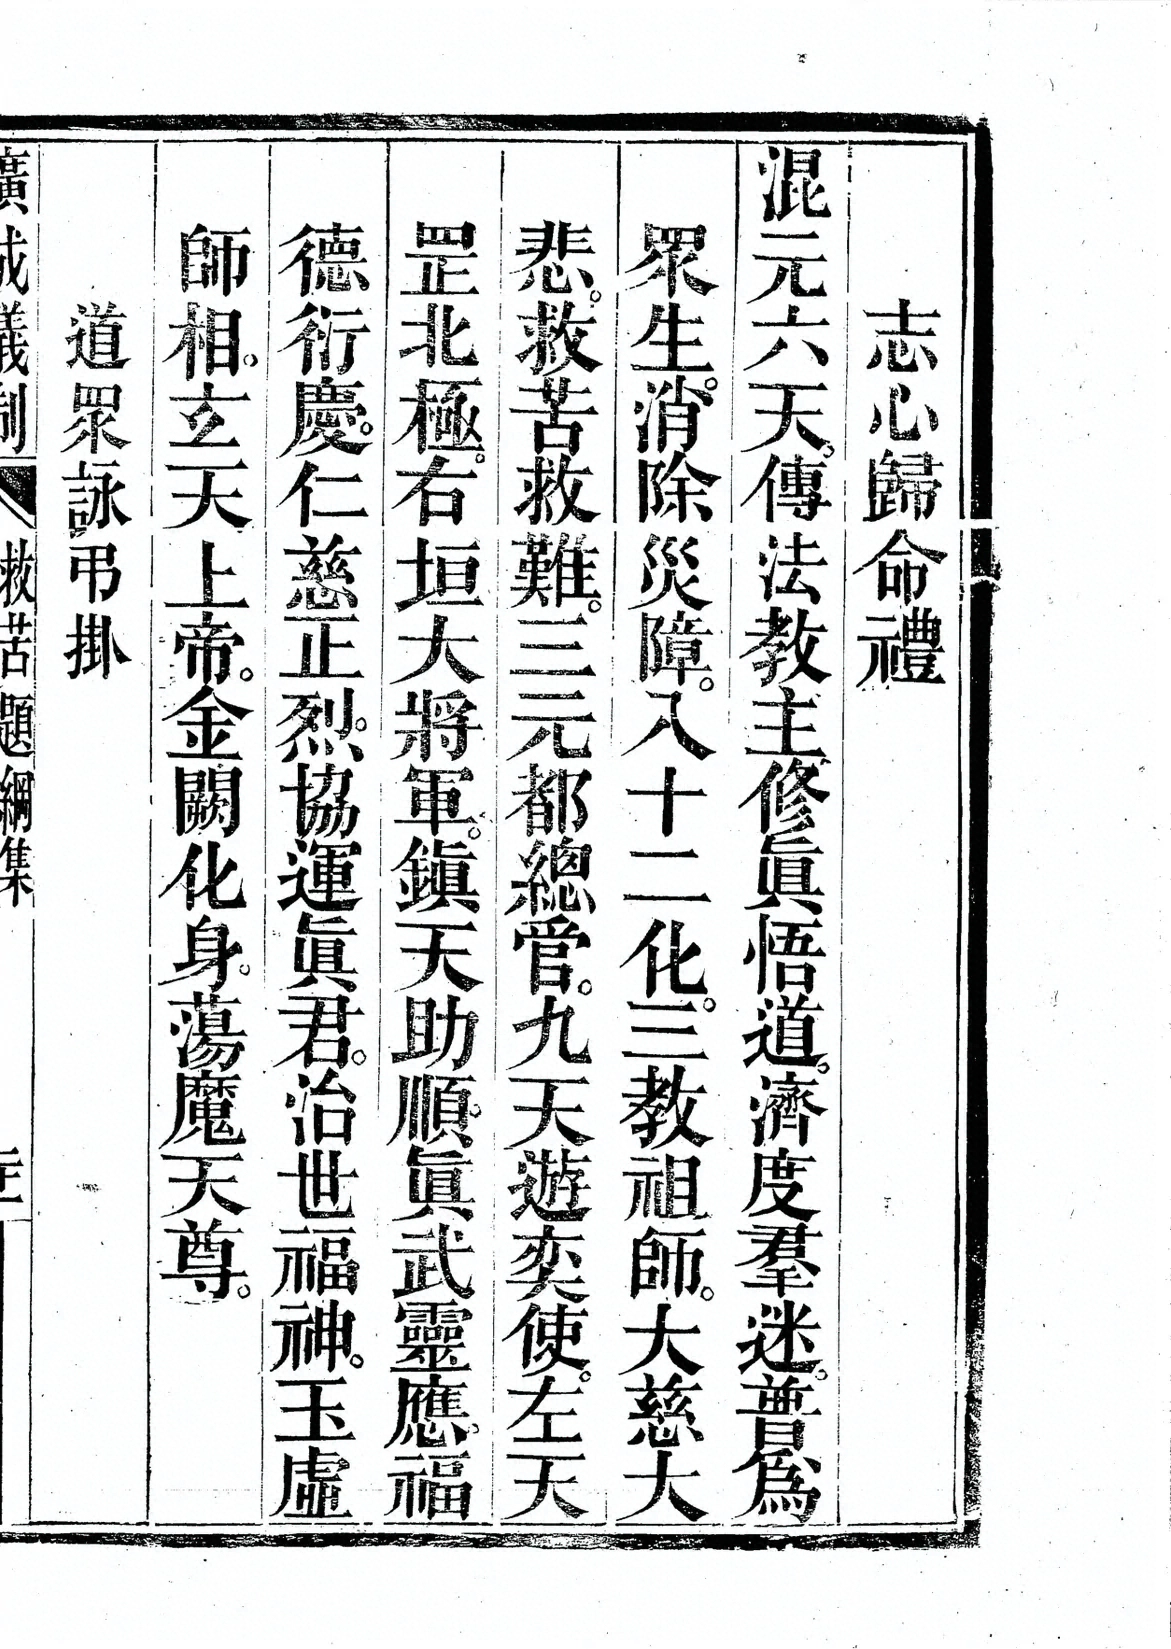 志心歸命禮
混元六天。傳法教主修眞悟道。濟度羣迷。普爲
眾生。消除災障。入十二化。三教祖師。大慈大
悲。救苦救難。三元都總管。九天遊奕使。左天
罡北極。右垣大將軍。鎭天助順。眞武靈應。福
德衍慶。仁慈正烈。協運眞君。治世福神。玉虛
師相。玄天上帝。金闕化身。蕩魔天尊。
道眾詠弔掛
廣成儀制 救苦題綱集